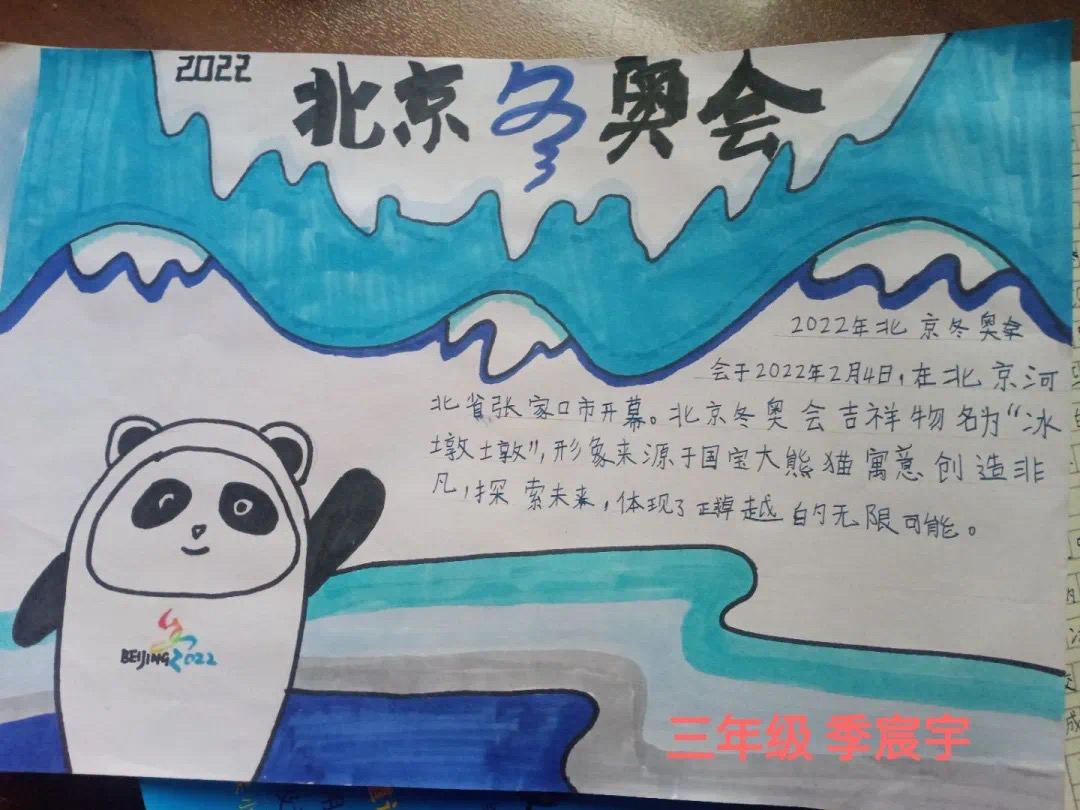 2022
北京冬奥会
2022年北京冬奥
会于2022年2月4日，在北京河
北省张家口市开幕。北京冬奥会吉祥物名为“冰
墩墩”，形象来源于国宝大熊猫寓意创造非
凡，探索未来，体现了 越的无限可能。
BEIJING 2022
三年级 季宸宇